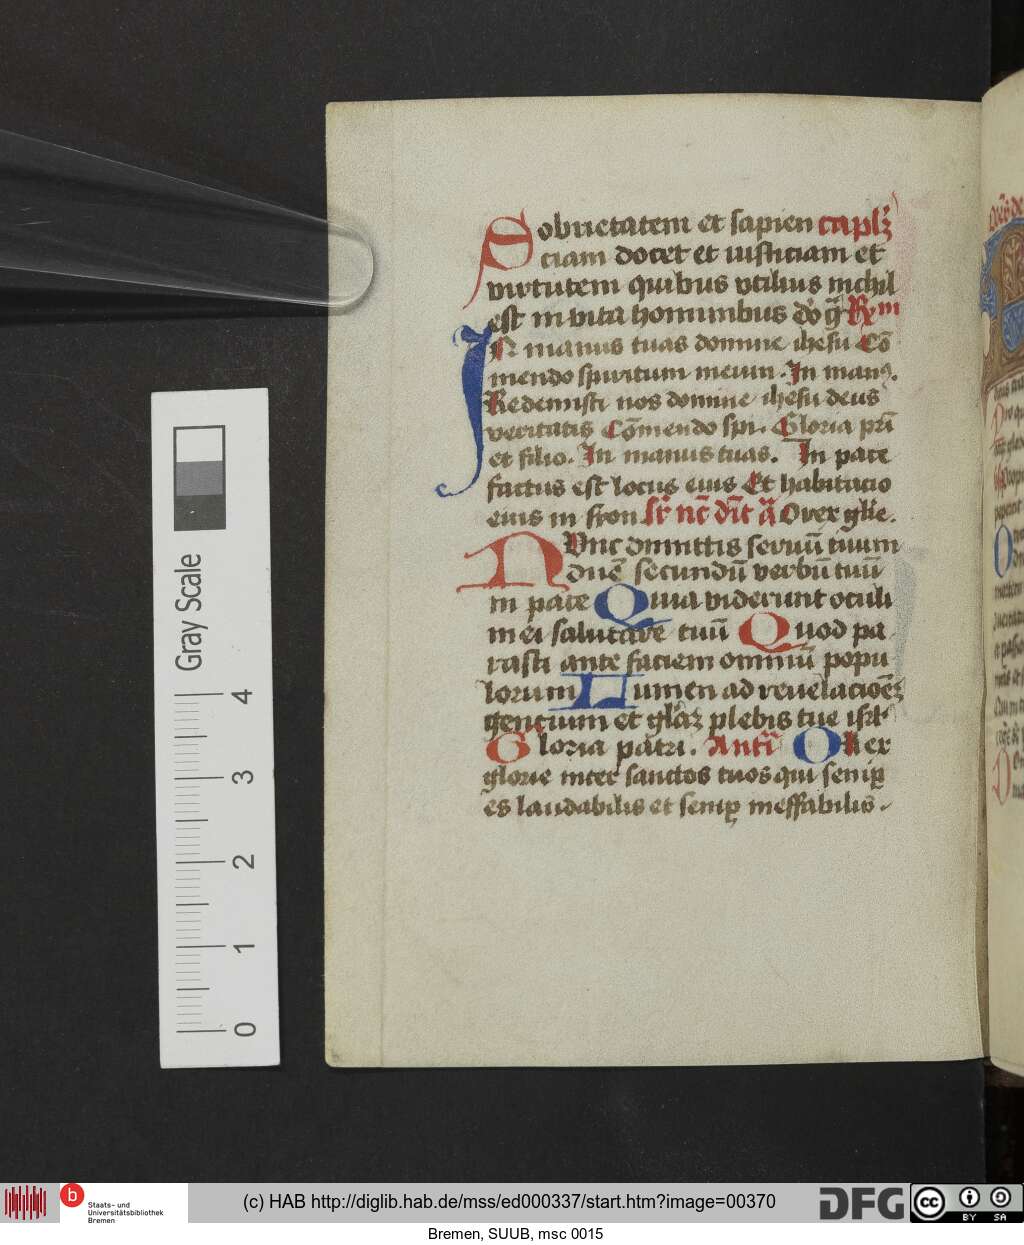 Sobrietatem et sapien caplꝫ
ciam docet et iusticiam et
virtutem quibus vtilius nichil
est in vita hominibus do gr̄ Rem
In manus tuas domine ihesu Cō
mendo spiritum meum. In man9.
Redemisti nos domine ihesu deus
veritatis Cōmendo spi. Gloria pri
et filio. In manus tuas. In pace
factus est locus eius Et habitacio
eius in syon an O rex glie.
NVnc dimittis seruū tuum
dn̄e secundū verbū tuū
in pace Quia viderunt oculi
mei salutare tuū Quod pa
rasti ante faciem omniū popu
lorum Lumen ad reuelacionē
gencium et glaꝫ plebis tue isrl
Gloria patri. Antī O Rex
glorie inter sanctos tuos qui semꝑ
es laudabilis et semꝑ ineffabilis.
Gray Scale
4
3
2
1
0
b
Staats- und
Universitätsbibliothek
Bremen
(c) HAB http://diglib.hab.de/mss/ed000337/start.htm?image=00370
DFG
cc
BY SA
Bremen, SUUB, msc 0015